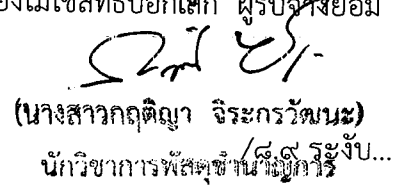 องไม่ใช้สิทธิบอกเลิก ผู้รับจ้างยอม
(นางสาวกฤติญา จิระกรวัฒนะ)
/๘.๙ ระงับ...
นักวิชาการพัสดุชำนาญการ